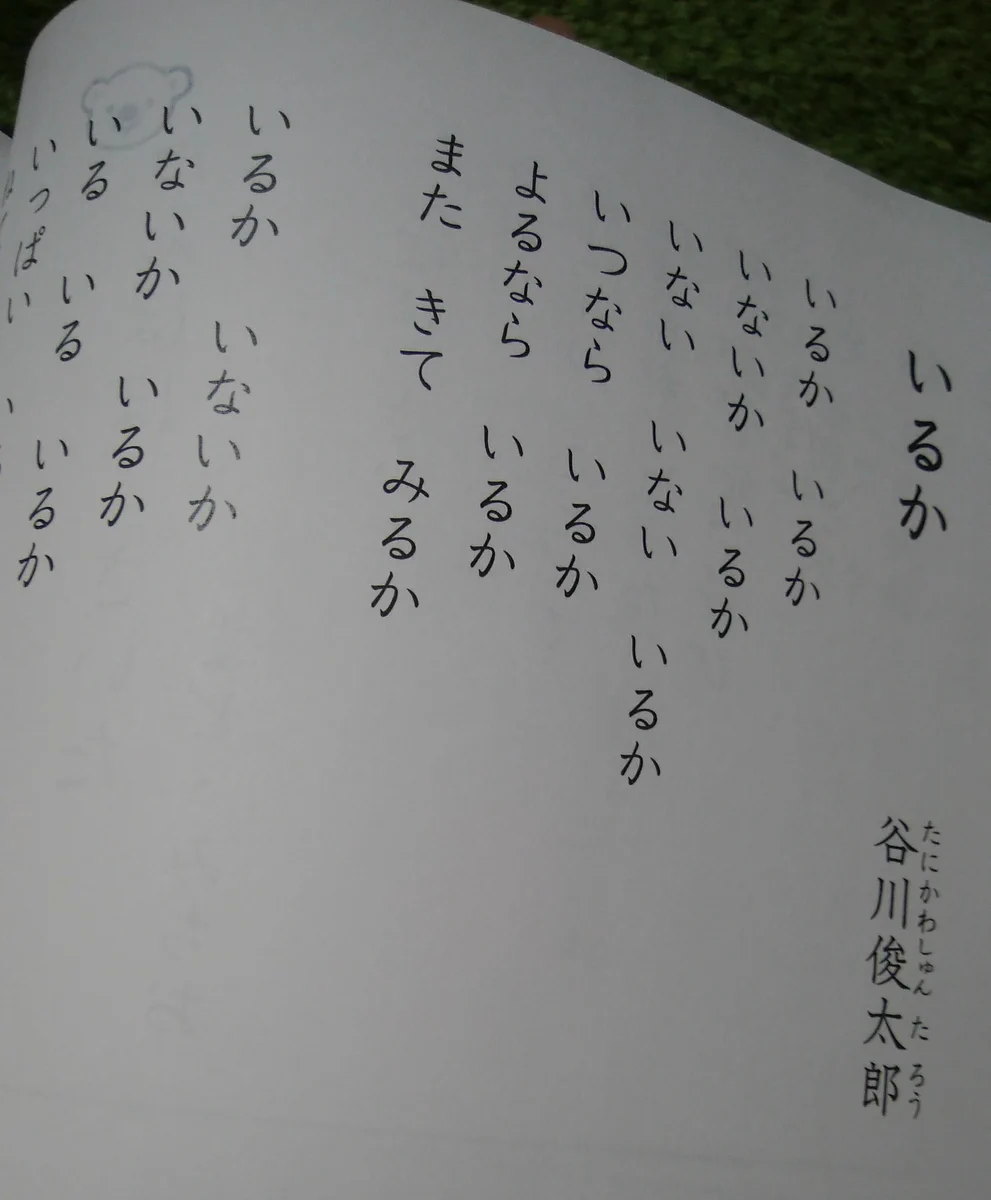 いるか
谷川俊太郎
たにかわしゅんたろう
いるか　いるか
いないか　いるか
いない　いない　いるか
いつなら　いるか
よるなら　いるか
また　きて　みるか
いるか　いないか
いないか　いるか
いる　いる　いるか
いっぱい